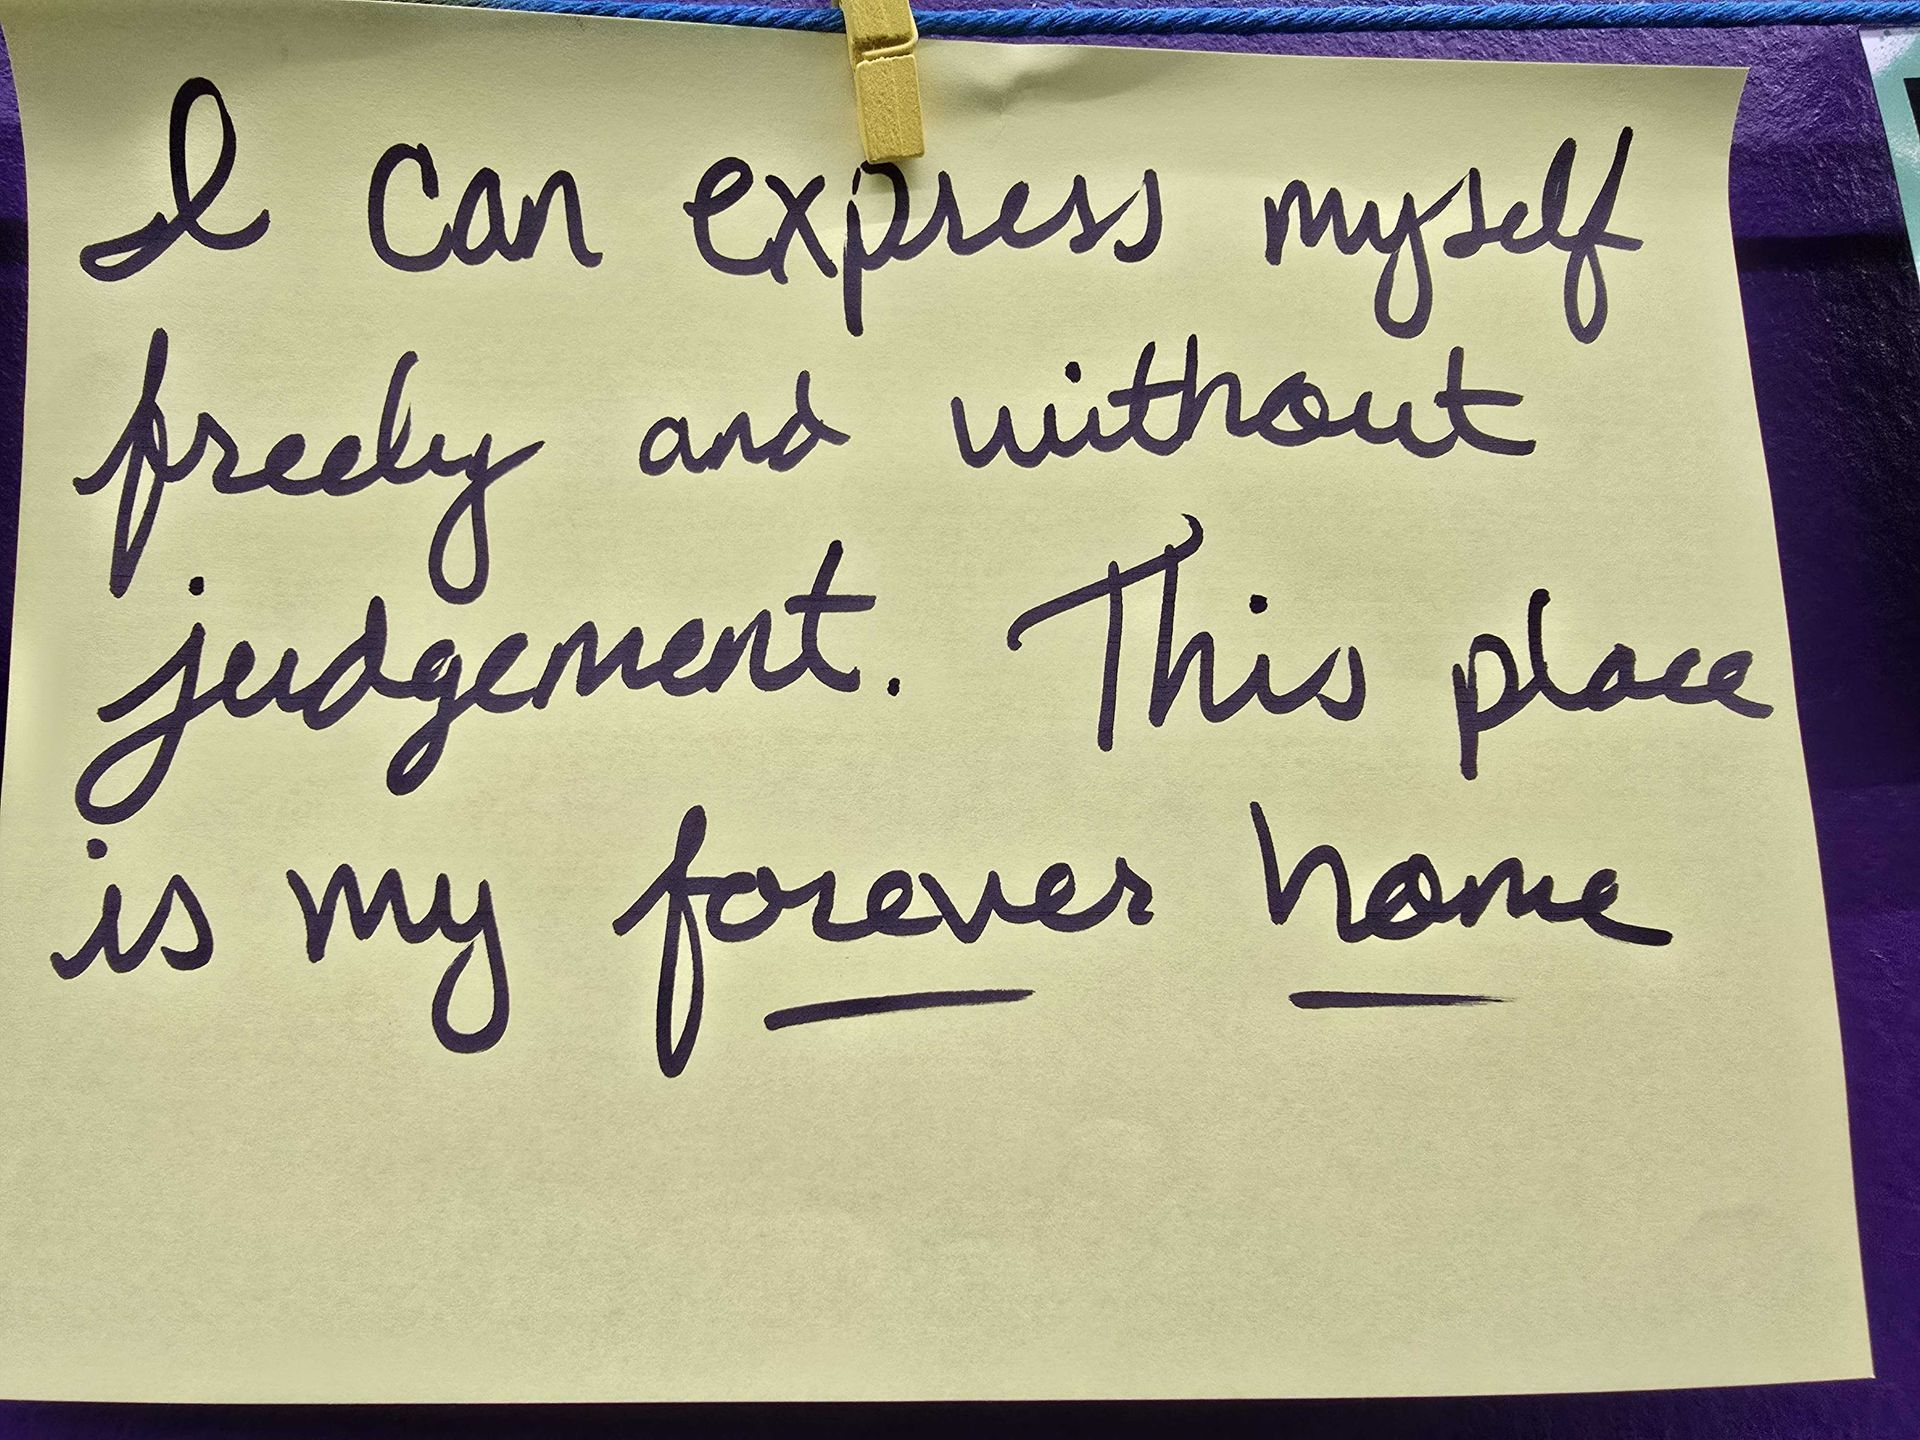 I can express myself
freely and without
judgement. This place
is my forever home